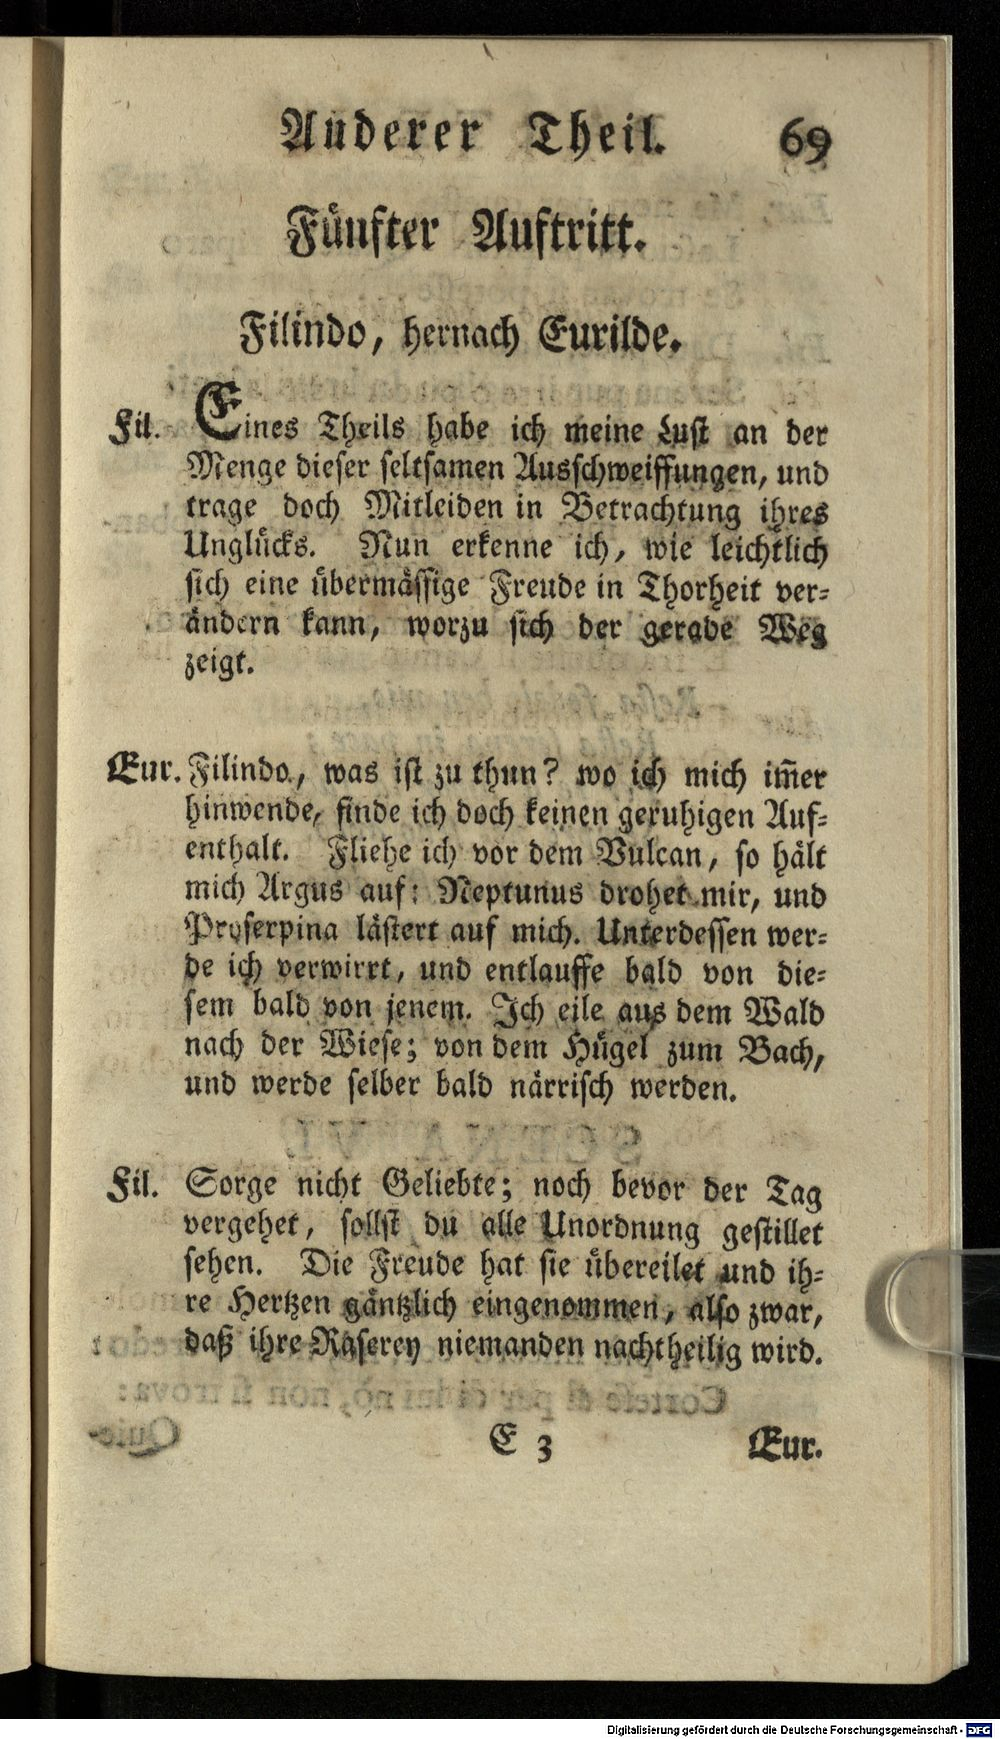 Anderer Theil. 69
Fünfter Auftritt.
Filindo, hernach Eurilde.
Fil. Eines Theils habe ich meine Lust an der
Menge dieser seltsamen Ausschweiffungen, und
trage doch Mitleiden in Betrachtung ihres
Unglücks. Nun erkenne ich, wie leichtlich
sich eine übermässige Freude in Thorheit ver-
ändern kann, worzu sich der gerade Weg
zeigt.
Eur. Filindo, was ist zu thun? wo ich mich im̄er
hinwende, finde ich doch keinen geruhigen Auf-
enthalt. Fliehe ich vor dem Vulcan, so hält
mich Argus auf: Neptunus drohet mir, und
Proserpina lästert auf mich. Unterdessen wer-
de ich verwirrt, und entlauffe bald von die-
sem bald von jenem. Ich eile aus dem Wald
nach der Wiese; von dem Hügel zum Bach,
und werde selber bald närrisch werden.
Fil. Sorge nicht Geliebte; noch bevor der Tag
vergehet, sollst du alle Unordnung gestillet
sehen. Die Freude hat sie übereilet und ih-
re Hertzen gäntzlich eingenommen, also zwar,
daß ihre Raserey niemanden nachtheilig wird.
E 3 Eur.
Digitalisierung gefördert durch die Deutsche Forschungsgemeinschaft - DFG